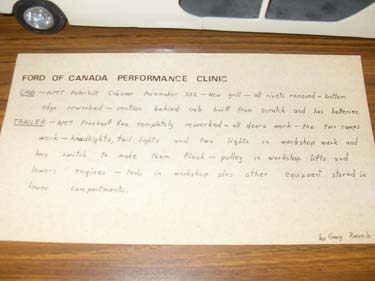 FORD OF CANADA PERFORMANCE CLINIC
CAB - AMT Peterbilt Cabover Pacemaker 352 - New grill - all rivets removed - bottom
edge reworked - section behind cab built from scratch and has batteries.
TRAILER - AMT Fruehauf Van completely reworked - all doors work - the two ramps
work - headlights, tail lights and two lights in workshop work and
has switch to make them flash - pulley in workshop lifts and
lowers engines - tools in workshop plus other equipment stored in
lower compartments.
by Gary